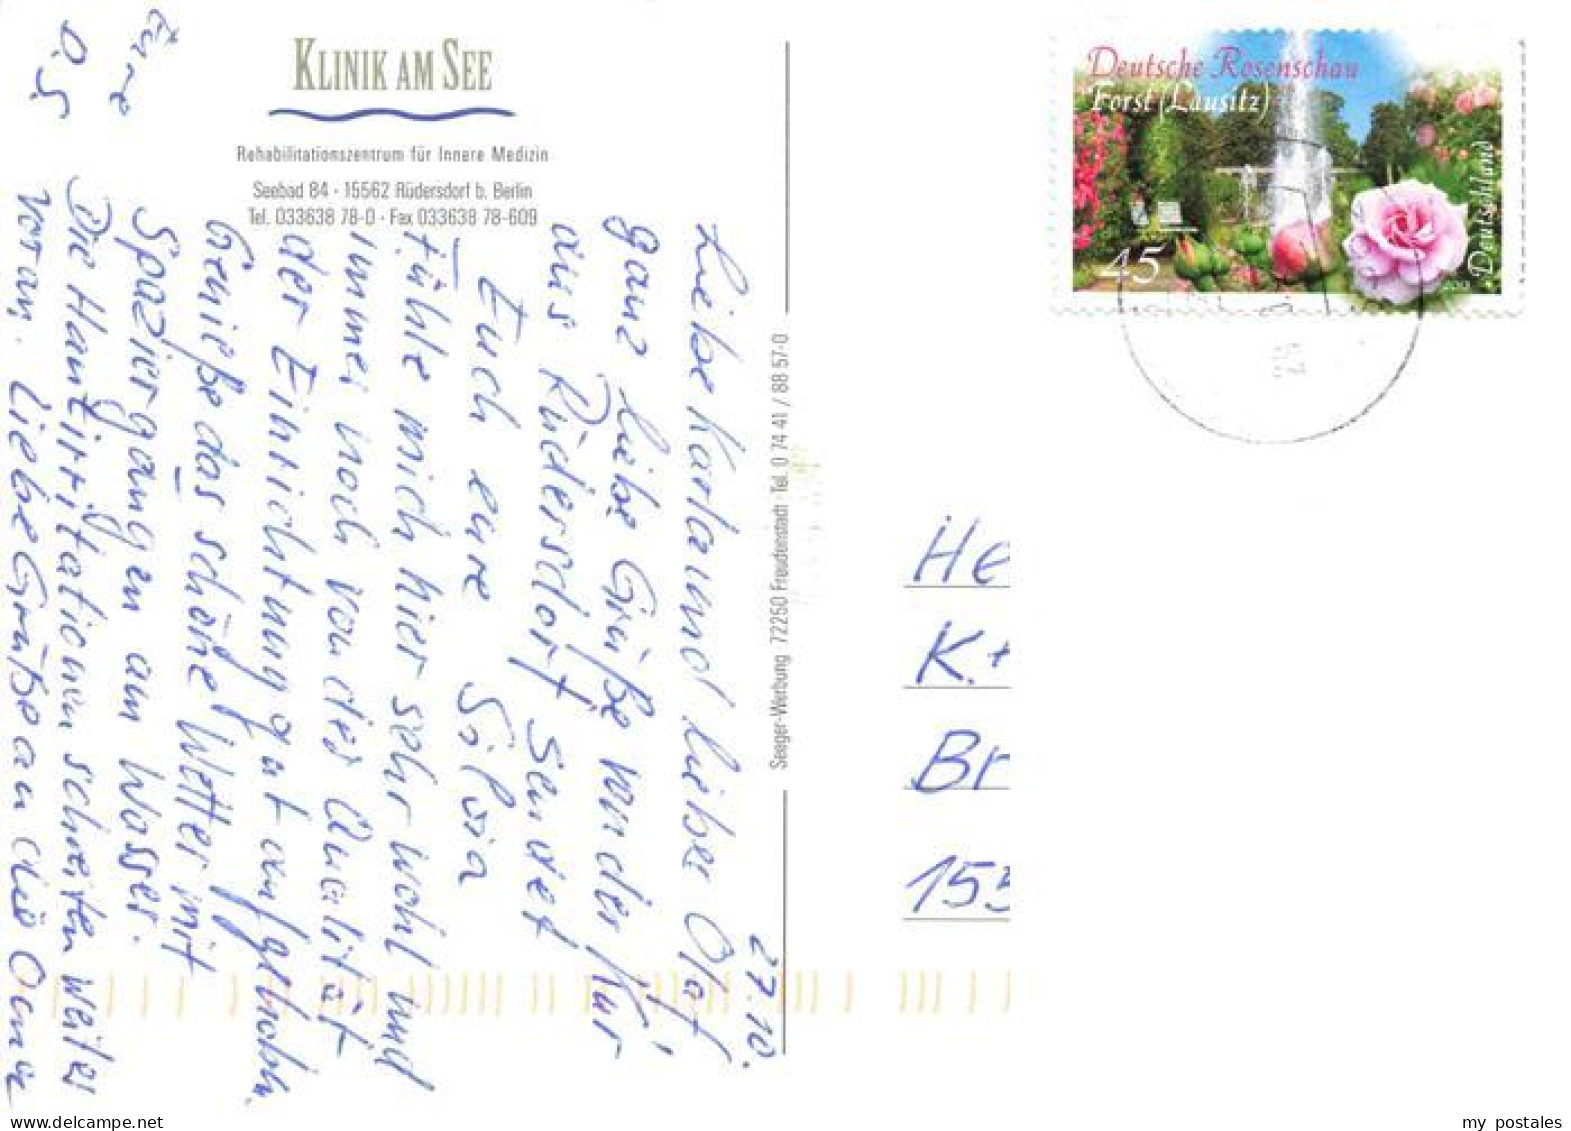 KLINIK AM SEE
Rehabilitationszentrum für Innere Medizin
Seebad 84 · 15562 Rüdersdorf b. Berlin
Tel. 033638 78-0 · Fax 033638 78-609
27.10.
Liebe Karla und lieber Olaf,
ganz liebe Grüße von der Kur
aus Rüdersdorf sendet
Euch eure Silvia
fühle mich hier sehr wohl und
immer noch von der Qualität
der Einrichtung gut aufgehoben.
Genieße das schöne Wetter mit
Spaziergängen am Wasser.
Die Hautirritationen schreiten weiter
voran. Liebe Grüße an die Oma
Eure
Seeger-Werbung 72250 Freudenstadt · Tel. 0 74 41 / 88 57-0
Deutsche Rosenschau
Forst (Lausitz)
45
Deutschland
He
K.+
Br
155
my postales